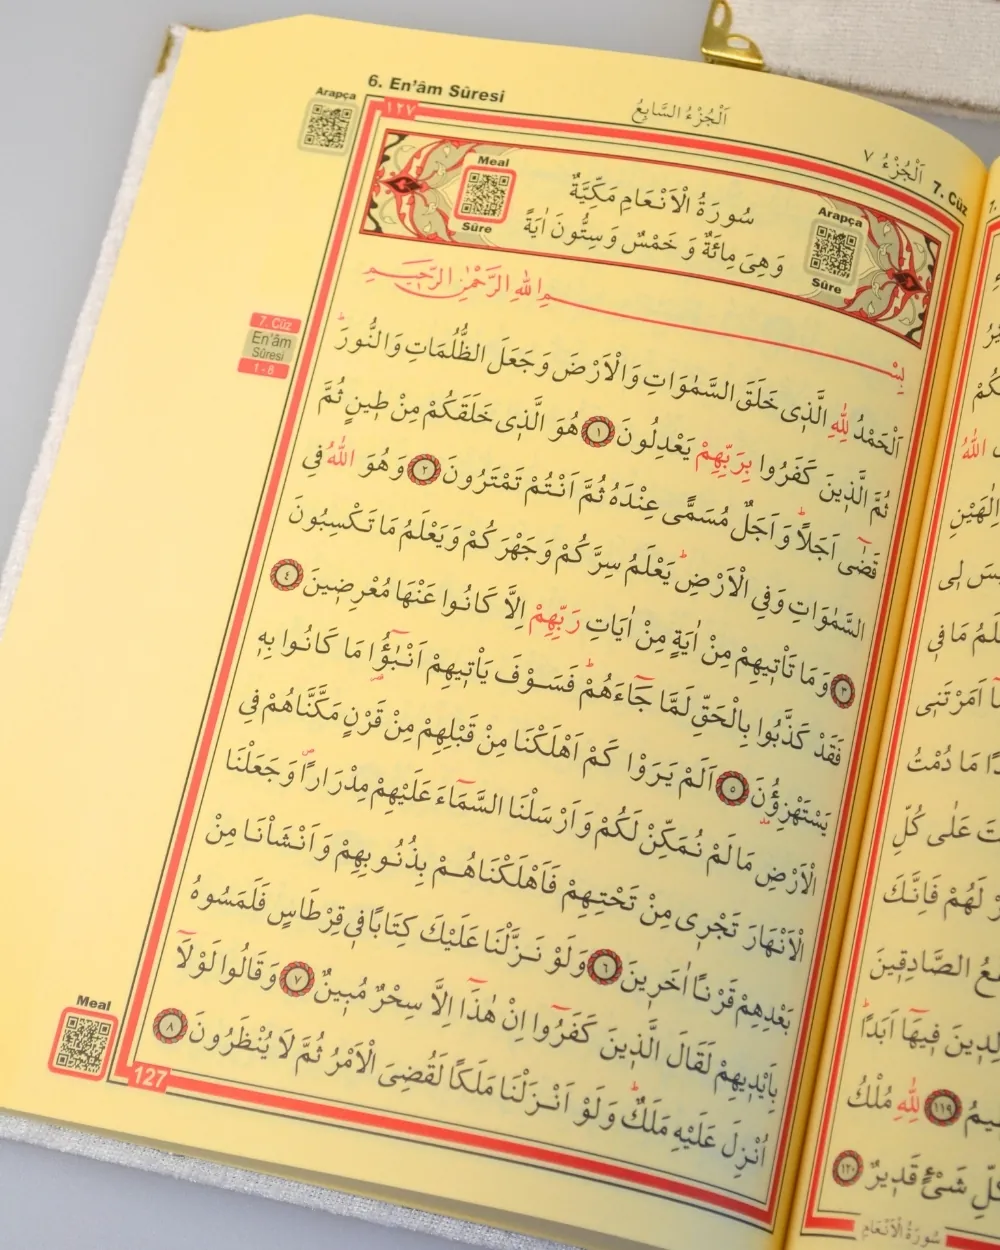 6. En'âm Sûresi
اَلْجُزْءُ السَّابِعُ
اَلْجُزْءُ ٧
7. Cüz
Arapça
١٢٧
Meal
Sûre
سُورَةُ الْاَنْعَامِ مَكِّيَّةٌ
وَهِىَ مِائَةٌ وَ خَمْسٌ وَسِتُّونَ اٰيَةً
Arapça
Sûre
بِسْمِ اللّٰهِ الرَّحْمٰنِ الرَّحٖيمِ
7. Cüz
En'âm
Sûresi
1 - 8
اَلْحَمْدُ لِلّٰهِ الَّذٖى خَلَقَ السَّمٰوَاتِ وَالْاَرْضَ وَجَعَلَ الظُّلُمَاتِ وَالنُّورَؕ
ثُمَّ الَّذٖينَ كَفَرُوا بِرَبِّهِمْ يَعْدِلُونَ ١ هُوَ الَّذٖى خَلَقَكُمْ مِنْ طٖينٍ ثُمَّ
قَضٰٓى اَجَلًاؕ وَاَجَلٌ مُسَمًّى عِنْدَهُ ثُمَّ اَنْتُمْ تَمْتَرُونَ ٢ وَهُوَ اللّٰهُ فِى
السَّمٰوَاتِ وَفِى الْاَرْضِؕ يَعْلَمُ سِرَّكُمْ وَجَهْرَكُمْ وَيَعْلَمُ مَا تَكْسِبُونَ
٣ وَمَا تَاْتٖيهِمْ مِنْ اٰيَةٍ مِنْ اٰيَاتِ رَبِّهِمْ اِلَّا كَانُوا عَنْهَا مُعْرِضٖينَ ٤
فَقَدْ كَذَّبُوا بِالْحَقِّ لَمَّا جَٓاءَهُمْؕ فَسَوْفَ يَاْتٖيهِمْ اَنْبٰٓؤُا مَا كَانُوا بِهٖ
يَسْتَهْزِؤُنَ ٥ اَلَمْ يَرَوْا كَمْ اَهْلَكْنَا مِنْ قَبْلِهِمْ مِنْ قَرْنٍ مَكَّنَّاهُمْ فِى
الْاَرْضِ مَا لَمْ نُمَكِّنْ لَكُمْ وَاَرْسَلْنَا السَّمَٓاءَ عَلَيْهِمْ مِدْرَارًا وَجَعَلْنَا
الْاَنْهَارَ تَجْرٖى مِنْ تَحْتِهِمْ فَاَهْلَكْنَاهُمْ بِذُنُوبِهِمْ وَاَنْشَاْنَا مِنْ
بَعْدِهِمْ قَرْنًا اٰخَرٖينَ ٦ وَلَوْ نَزَّلْنَا عَلَيْكَ كِتَابًا فٖى قِرْطَاسٍ فَلَمَسُوهُ
بِاَيْدٖيهِمْ لَقَالَ الَّذٖينَ كَفَرُٓوا اِنْ هٰذَٓا اِلَّا سِحْرٌ مُبٖينٌ ٧ وَقَالُوا لَوْلَٓا
اُنْزِلَ عَلَيْهِ مَلَكٌؕ وَلَوْ اَنْزَلْنَا مَلَكًا لَقُضِىَ الْاَمْرُ ثُمَّ لَا يُنْظَرُونَ ٨
Meal
127
اللّٰهُ
لَمُ مَا فٖى
اَمَرْتَنٖى
مَا دُمْتُ
عَلٰى كُلِّ
لَهُمْ فَاِنَّكَ
الصَّادِقٖينَ
فٖيهَٓا اَبَدًا
١١٩ لِلّٰهِ مُلْكُ
شَىْءٍ قَدٖيرٌ ١٢٠
سُورَةُ الْاَنْعَامِ